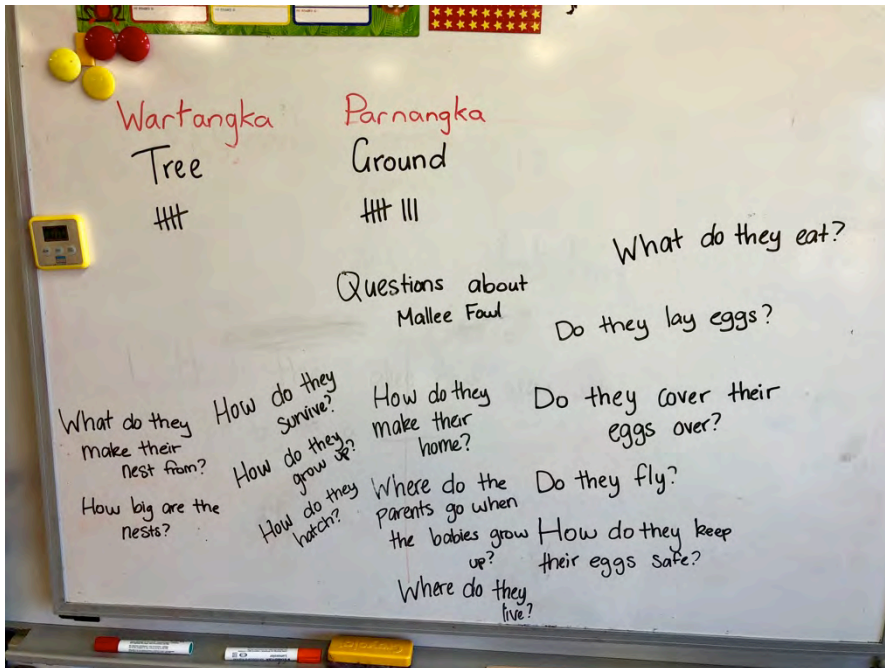 Wartangka
Parnangka
Tree
Ground
Questions about
Mallee Fowl
What do they eat?
Do they lay eggs?
What do they
make their
nest from?
How big are the
nests?
How do they
survive?
How do they
grow up?
How do they
hatch?
How do they
make their
home?
Where do the
parents go when
the babies grow
up?
Where do they
live?
Do they cover their
eggs over?
Do they fly?
How do they keep
their eggs safe?